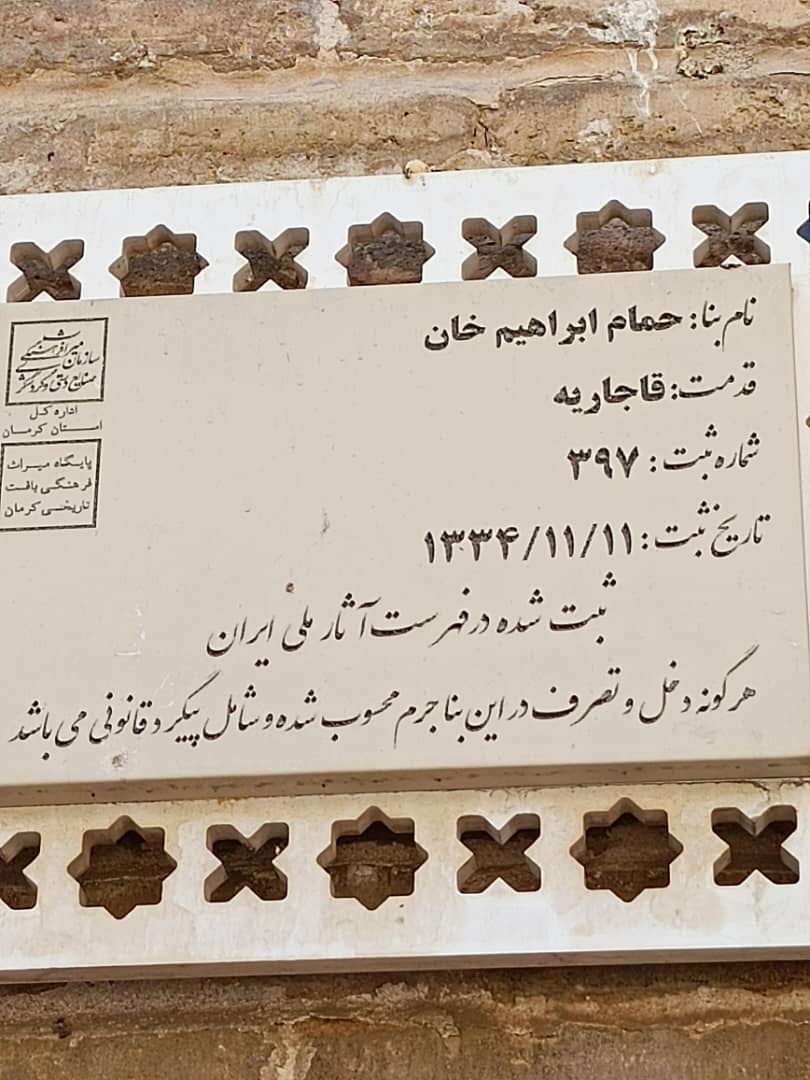 نام بنا: حمام ابراهیم خان
قدمت: قاجاریه
شماره ثبت: ۳۹۷
تاریخ ثبت: ۱۳۳۴/۱۱/۱۱
ثبت شده در فهرست آثار ملی ایران
هرگونه دخل و تصرف در این بنا جرم محسوب شده و شامل پیگرد قانونی می باشد
سازمان میراث فرهنگی
صنایع دستی و گردشگری
اداره کل
استان کرمان
پایگاه میراث
فرهنگی بافت
تاریخی کرمان